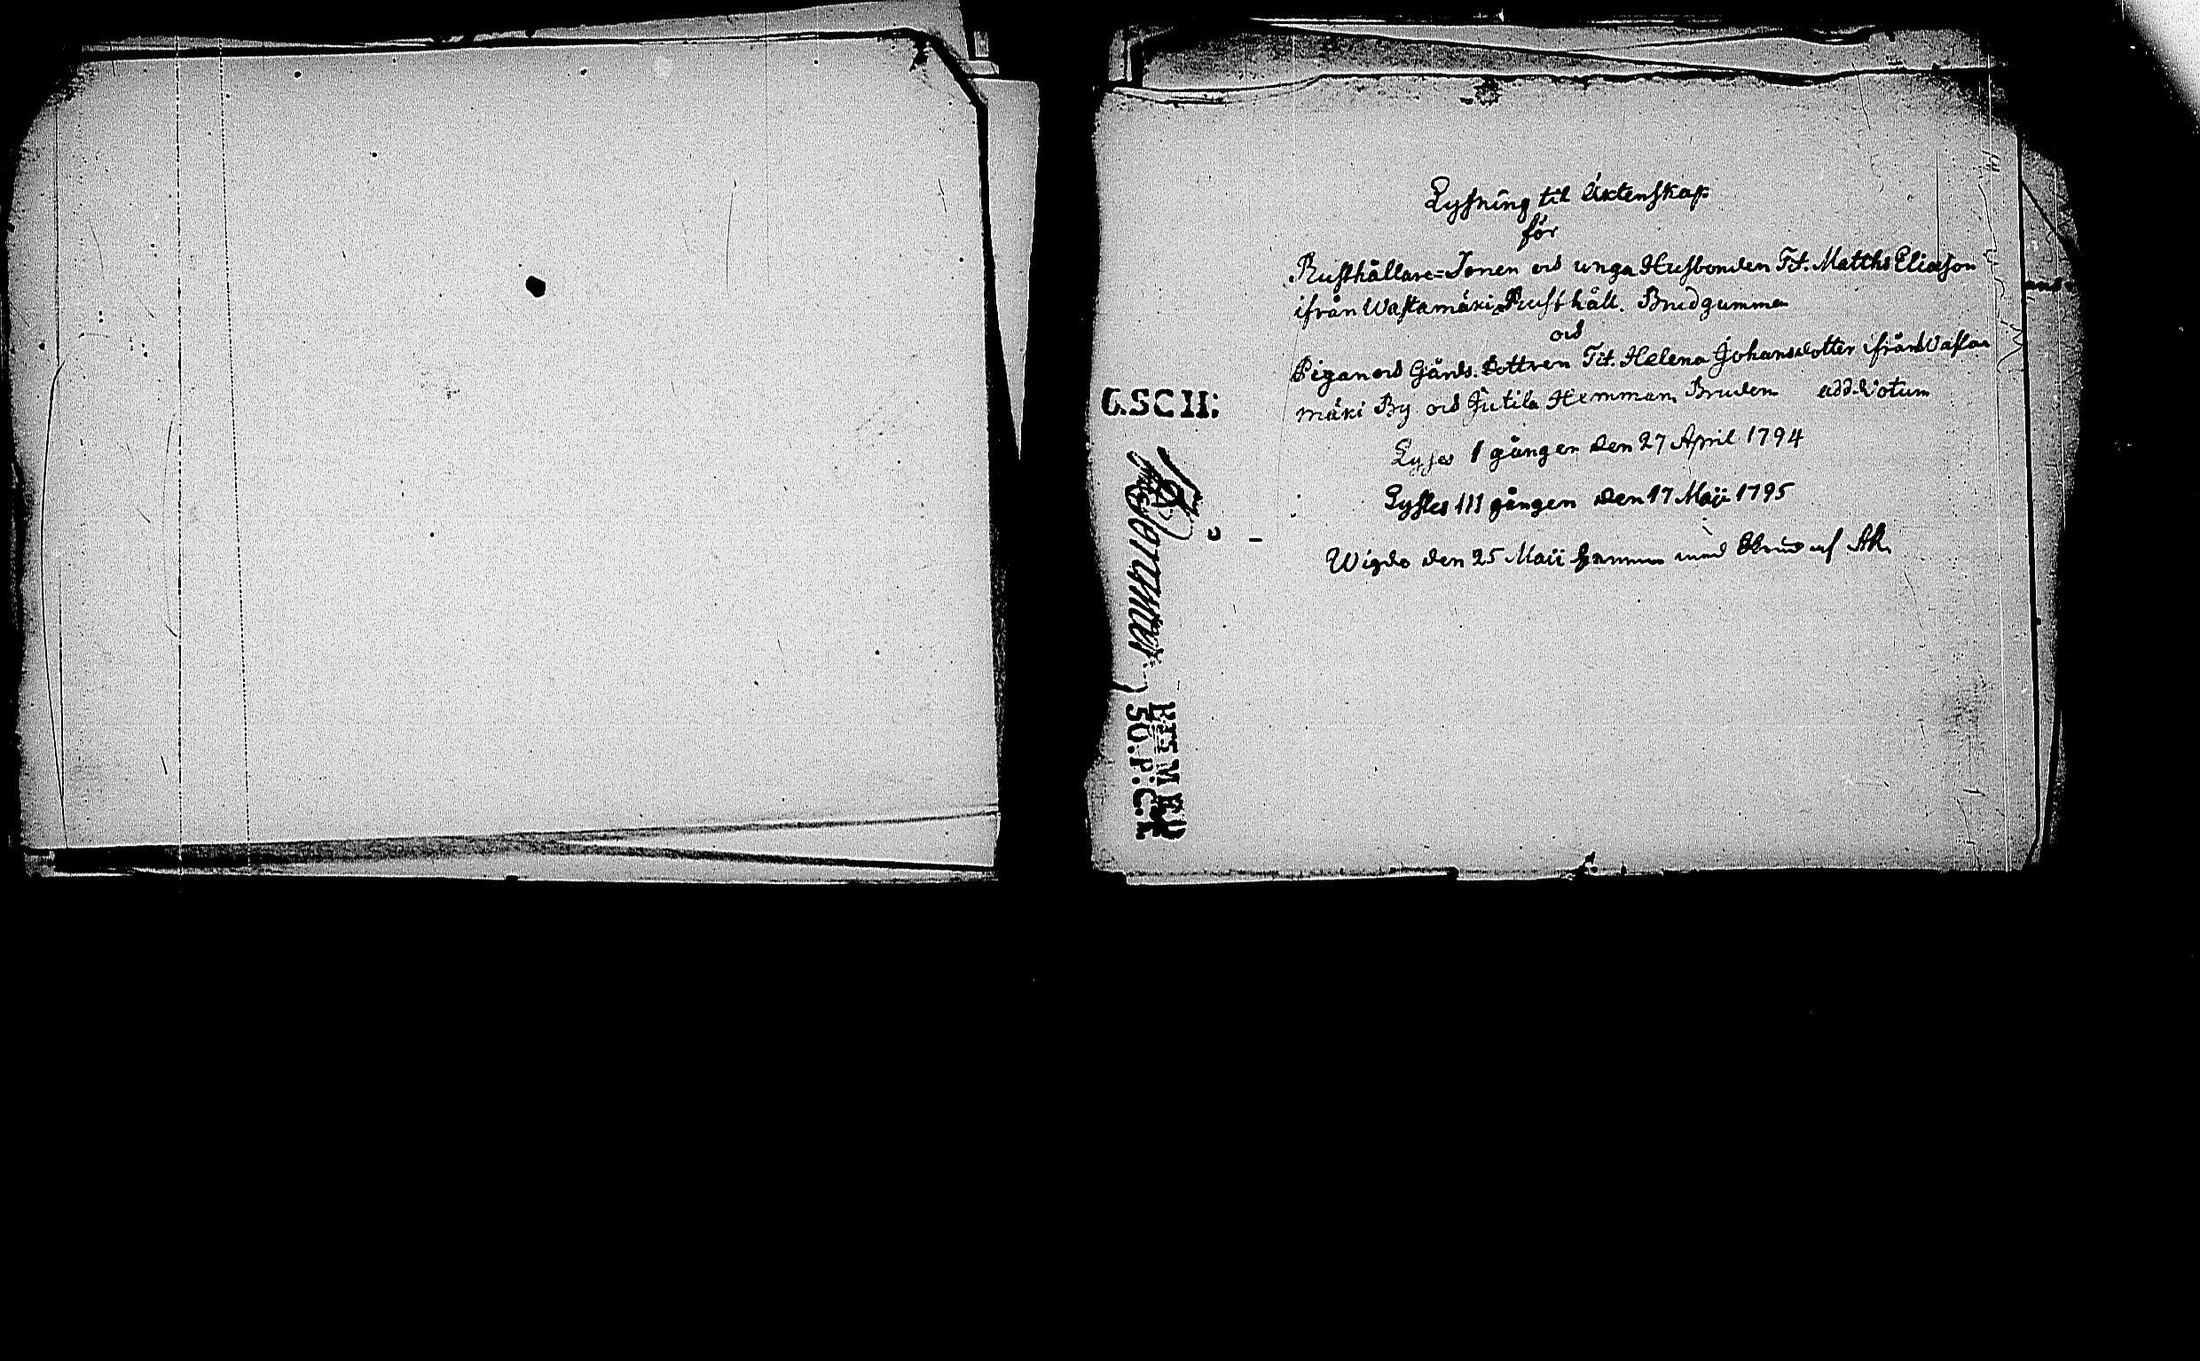 Lysning til Äktenskap
för
Rusthållare=Sonen och unga Husbonden Tit. Matths Eliæson
ifrån Wastamäki Rusthåll. Brudgumme
och
Pigan och Gårds. Dottren Tit. Helena Johansdotter ifrån Vasta
mäki By och Jutila Hemman, Bruden add. Votum
Lyses 1 gången den 27 April 1794
Lystes III gången den 17 Maji 1795
Wigde den 25 Maii samma
G.SCH:
50. P:C.